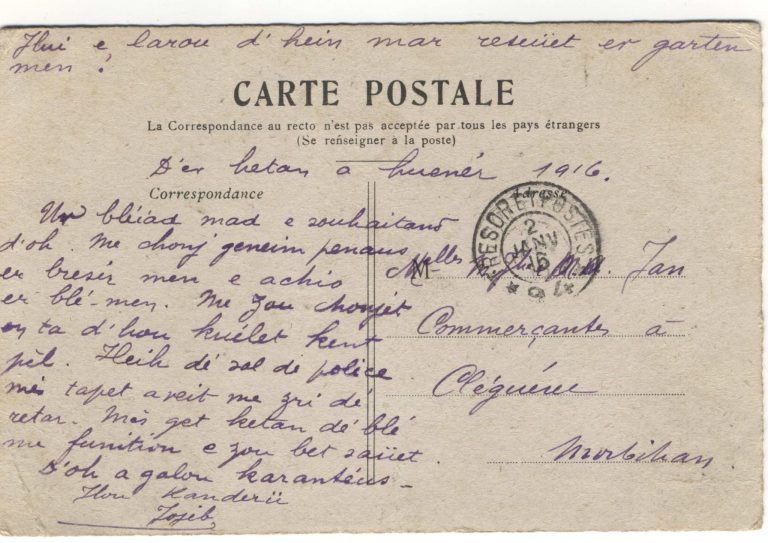 Hui e larou d'hein mar reseüet er garten
men ?
CARTE POSTALE
La Correspondance au recto n'est pas acceptée par tous les pays étrangers
(Se renseigner à la poste)
D'er hetan a huenér 1916.
Correspondance
Adresse
Ur bléiad mad e souhaitan
d'oh. Me chonj geneim penaus
er bresér men e achio
er blé-men. Me zou chonjet
en ta d'hou kuélet kent
pèl. Heih dé sal de police
mes tapet aveit me zri dé
retar. Mès get ketan dé blé
me funition e zou bet saüet.
D'oh a galon karantéus
Hou Kanderü
Jojeb
TRESOR ET POSTES
2
JANV
16
* 9 *
M elles Jan
Commerçantes à
Cléguérec
Morbihan.